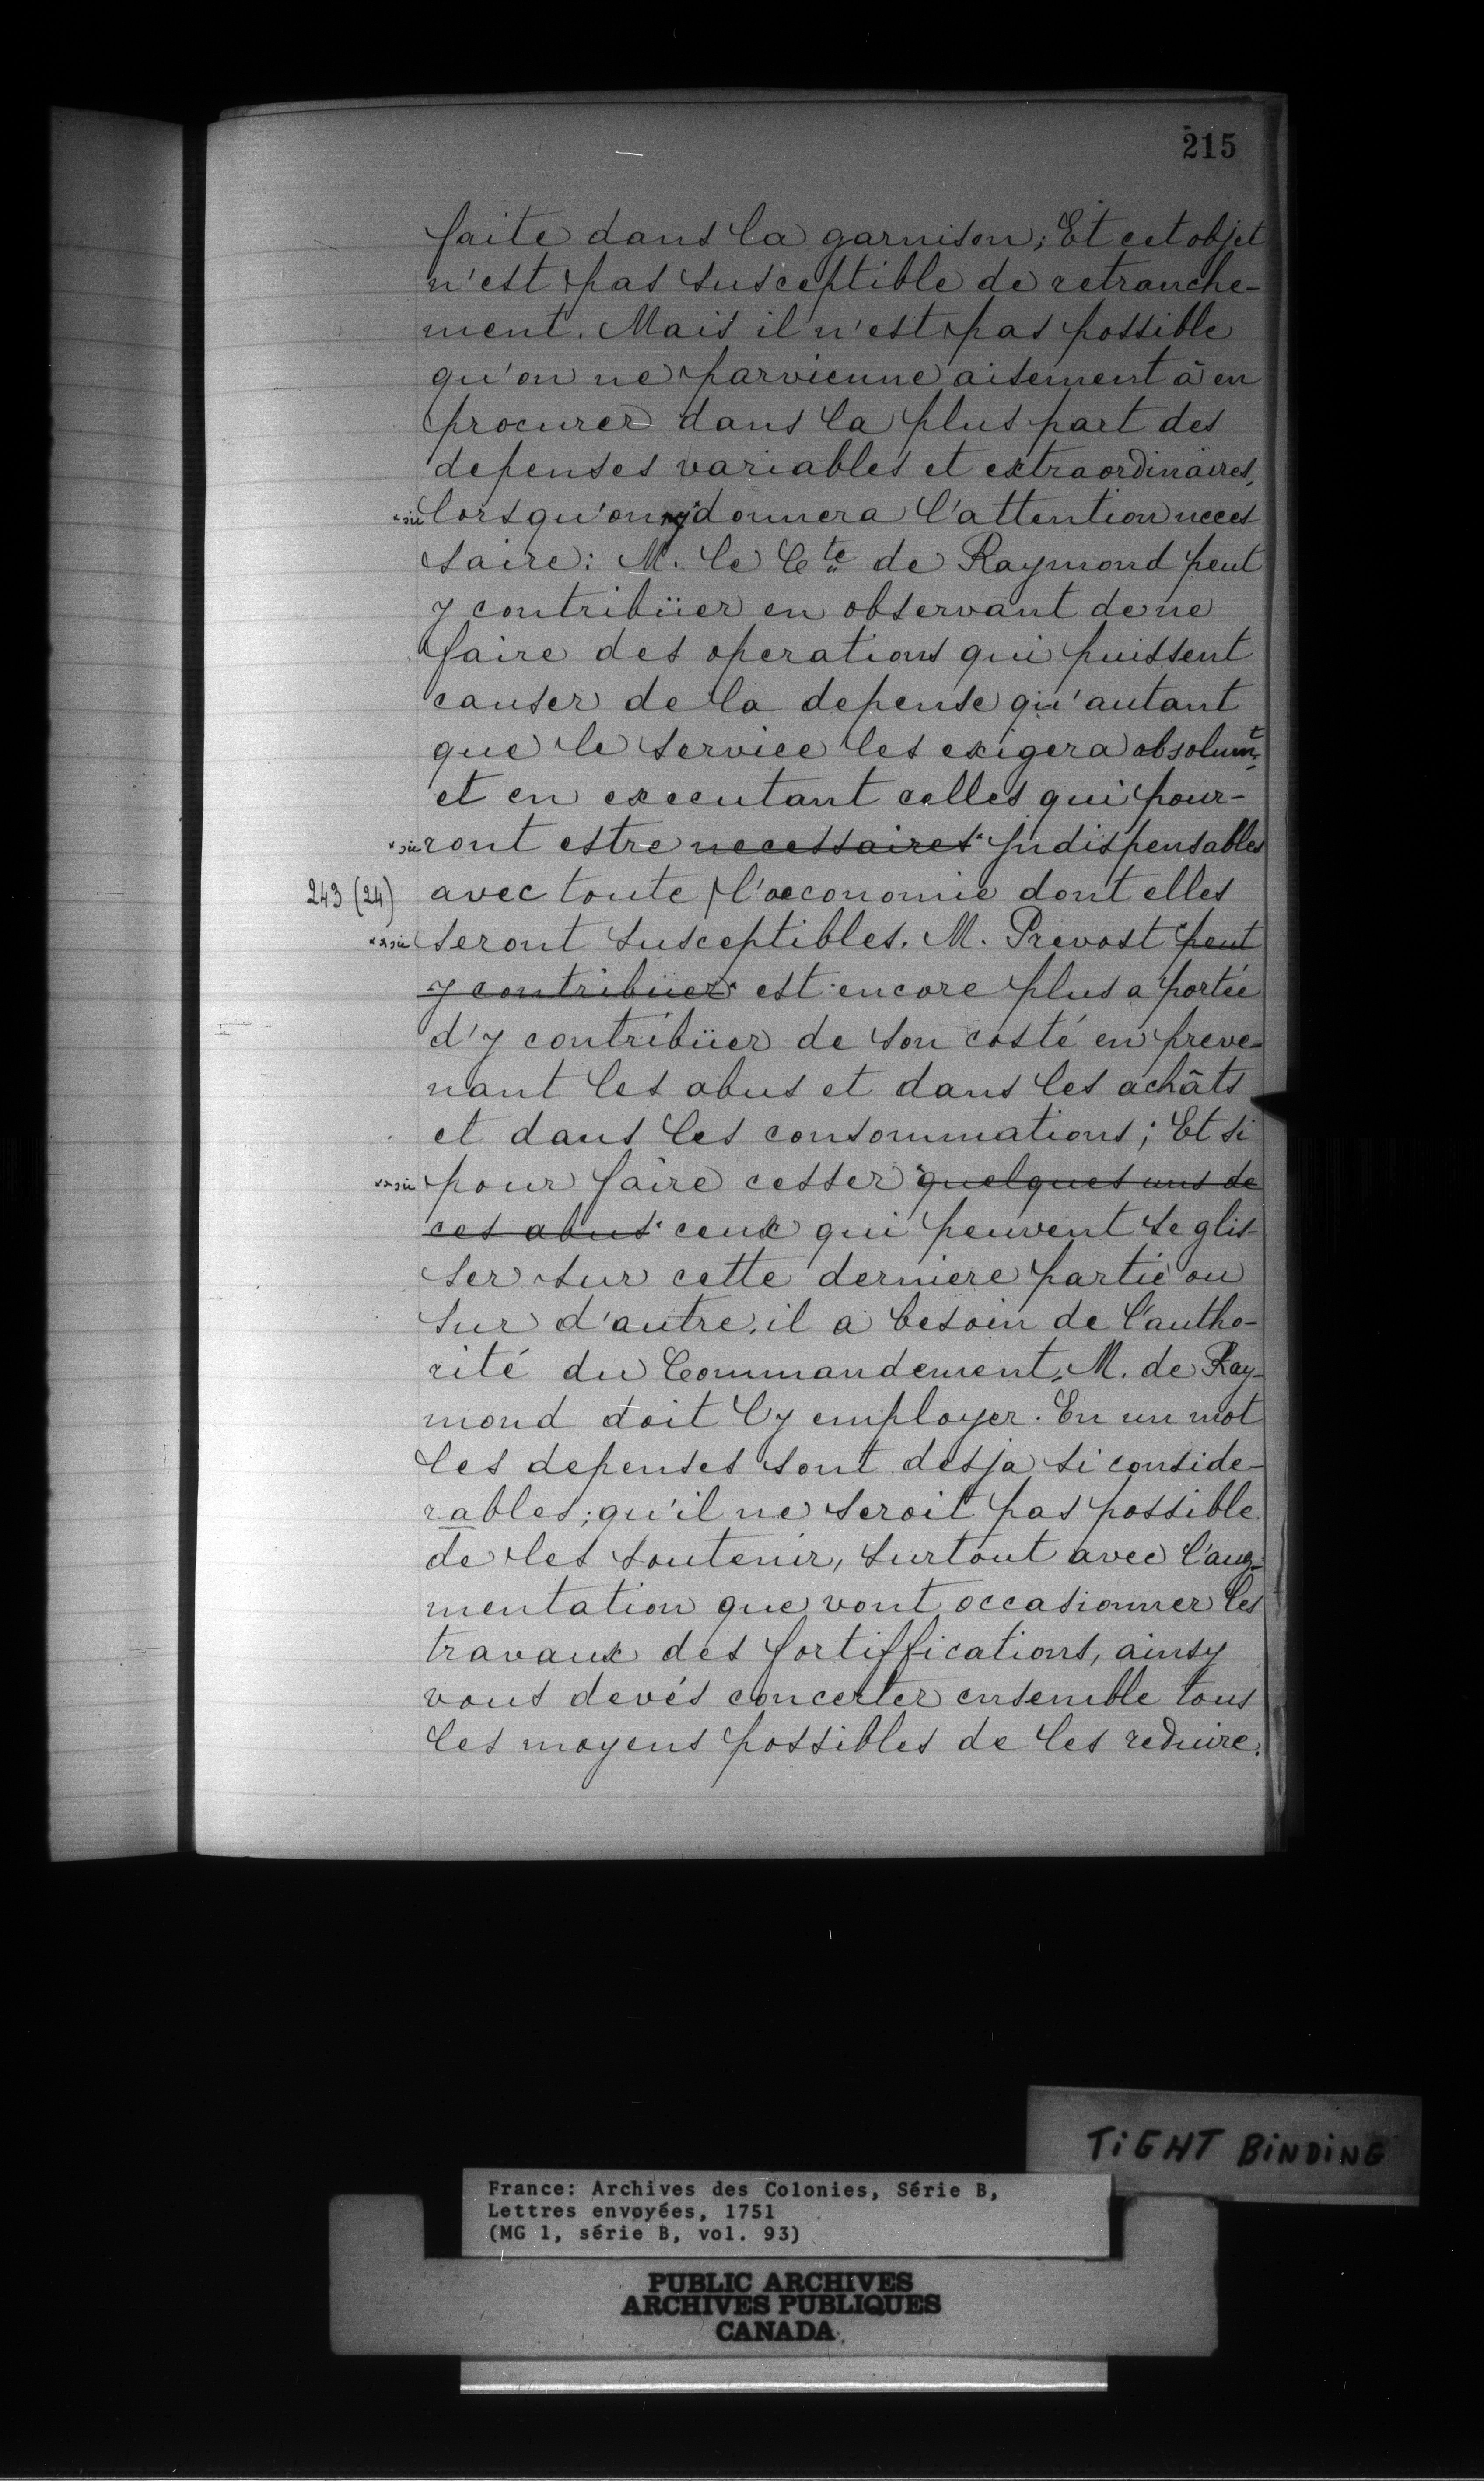 215
faite dans la garnison; Et cet objet
n'est pas susceptible de retranche-
ment. Mais il n'est pas possible
qu'on ne parvienne aisement à en
procurer dans la plus part des
depenses variables et extraordinaires,
*sic lorsqu'on y* donnera l'attention neces
saire: M. le Cte de Raymond peut
y contribüer en observant de ne
faire des operations qui puissent
causer de la depense qu'autant
que le service les exigera absolumt,
et en executant celles qui pour-
*sic ront estre necessaires* Indispensables
243 (24) avec toute / l'oeconomie dont elles
**sic seront susceptibles. M. Prevost *peut
y contribüer* est encore plus a portée
d'y contribüer de son costé en preve-
nant les abus et dans les achâts
et dans les consommations; Et si
**sic pour faire cesser *quelques uns de
ces abus* ceux qui peuvent se glis-
ser sur cette derniere partie ou
sur d'autre, il a besoin de l'autho-
rité du Commandement, M. de Ray-
mond doit l'y employer. En un mot
les depenses sont desja si conside-
rables; qu'il ne seroit pas possible
de les soutenir, surtout avec l'aug-
mentation que vont occasionner les
travaux des fortiffications, ainsy
vous devés concerter ensemble tous
les moyens possibles de les reduire.
TIGHT BINDING
France: Archives des Colonies, Série B,
Lettres envoyées, 1751
(MG 1, série B, vol. 93)
PUBLIC ARCHIVES
ARCHIVES PUBLIQUES
CANADA